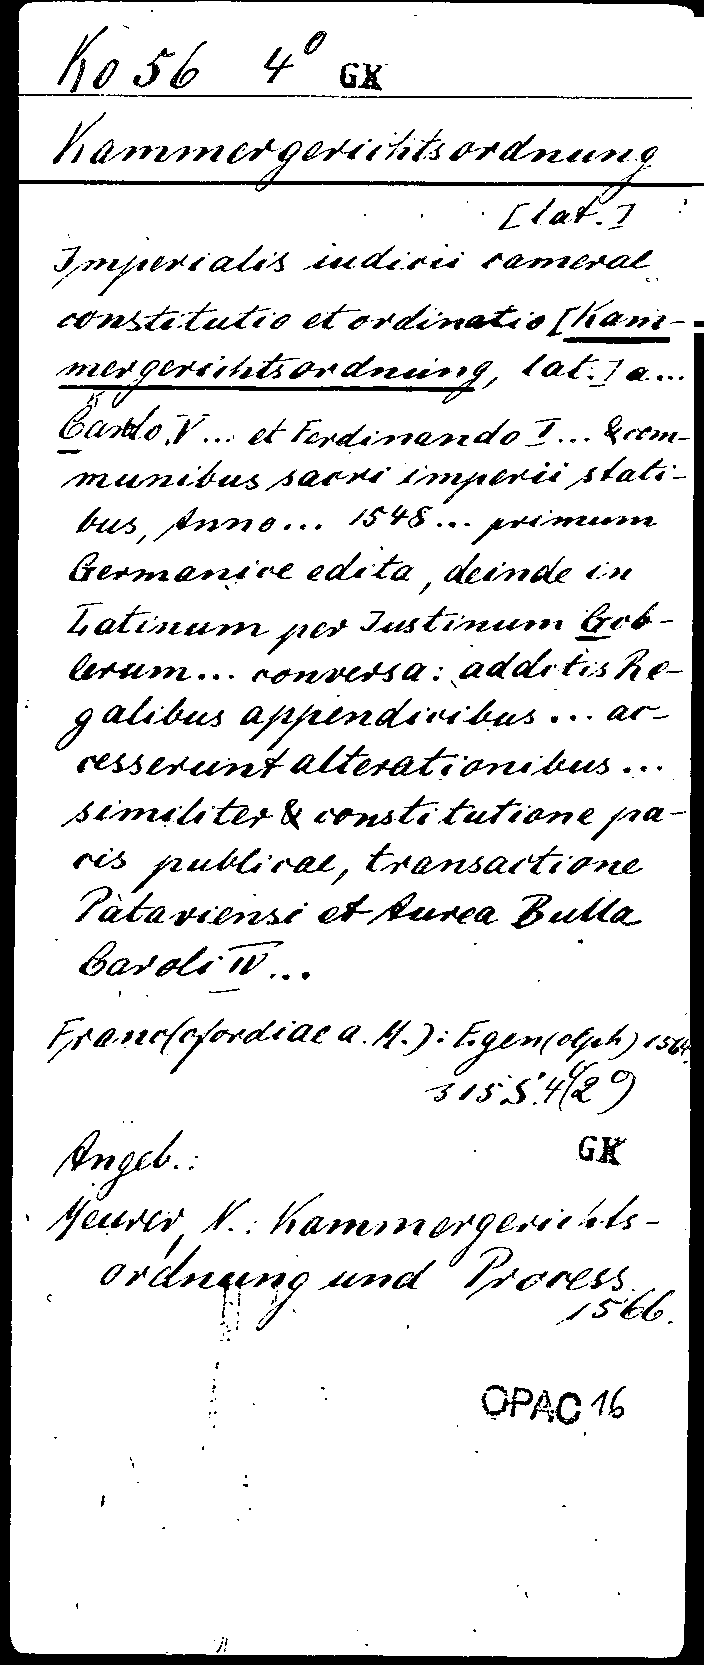 Ko 56 4° GK
Kammergerichtsordnung
[lat.]
Imperialis iudicii camerae
constitutio et ordinatio [Kam-
mergerichtsordnung, lat.] a...
Carolo V... et Ferdinando I... & com-
munibus sacri imperii stati-
bus, Anno... 1548... primum
Germanice edita, deinde in
Latinum per Iustinum Gob-
lerum... conversa: additis Re-
galibus appendicibus... ac-
cesserunt alterationibus...
similiter & constitutione pa-
cis publicae, transactione
Pataviensi et Aurea Bulla
Caroli IV...
Franc(ofordiae a. M.): Egen(olph) 1564.
315 S. 4° (2°)
GK
Angeb.:
Meurer, N.: Kammergerichts-
ordnung und Process
1566.
OPAC 16